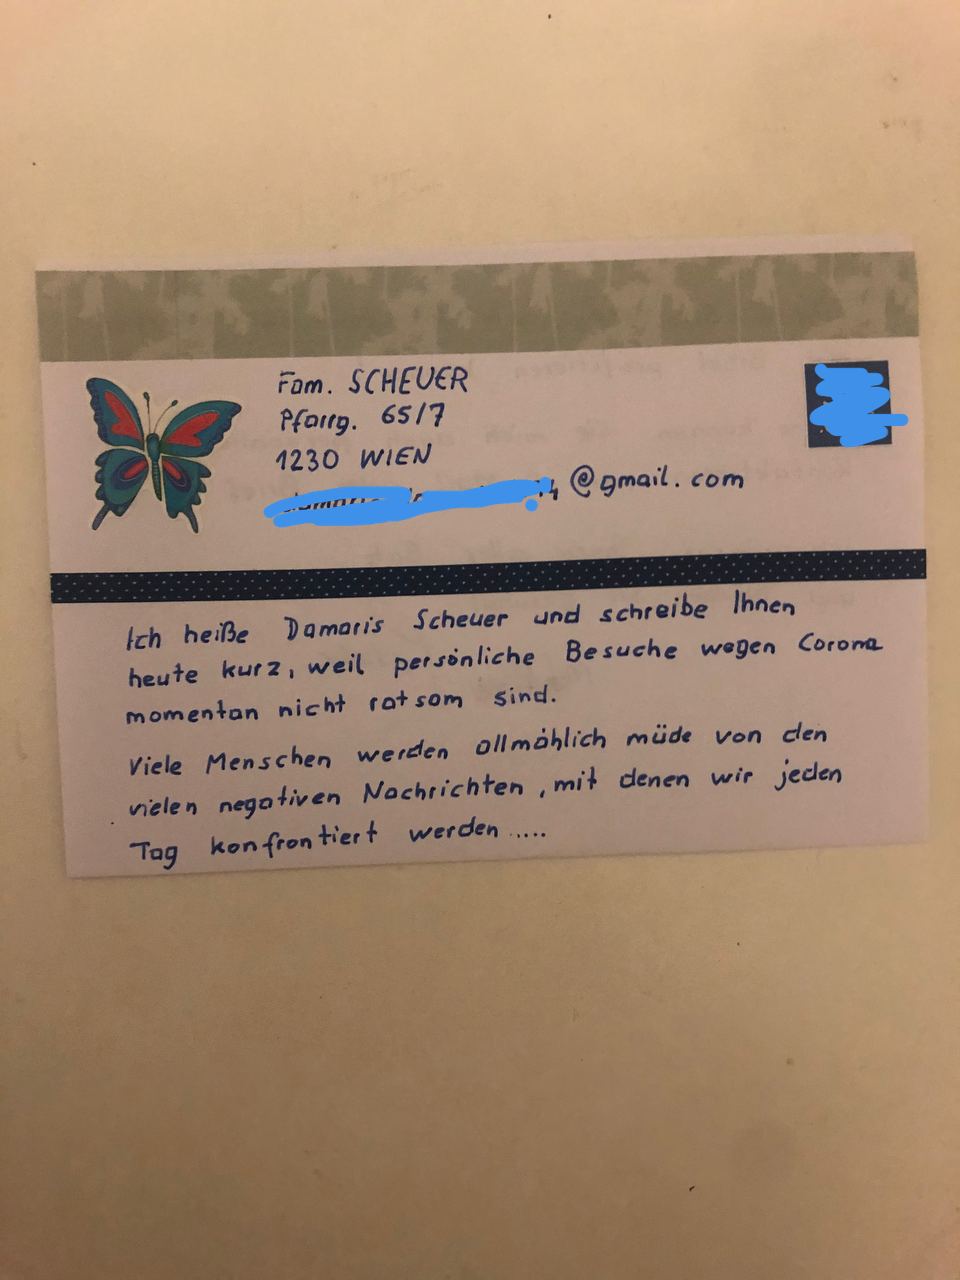 Fam. SCHEUER
Pfarrg. 65/7
1230 WIEN
@gmail.com
Ich heiße Damaris Scheuer und schreibe Ihnen
heute kurz, weil persönliche Besuche wegen Corona
momentan nicht ratsam sind.
Viele Menschen werden allmählich müde von den
vielen negativen Nachrichten, mit denen wir jeden
Tag konfrontiert werden .....